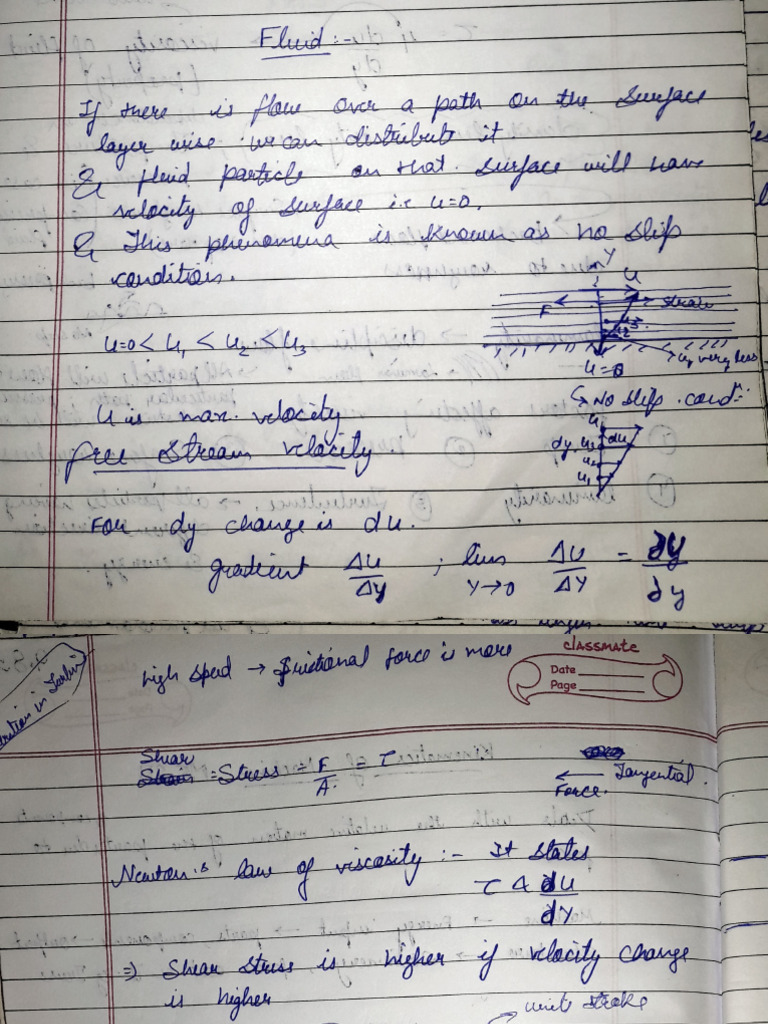 Fluid :-
If there is flow over a path on the surface
layer wise we can distribut it
& fluid particle on that surface will have
velocity of surface i.e u=0.
& This phenomena is known as no slip
condition.
Y
U
F
u=0
u=0 < u₁ < u₂ < u₃
u₁ very less
↳ No slip cond:
U is max. velocity
free stream velocity.
dy
du
For dy change is du.
gradient ΔU/ΔY ; lim Y→0 ΔU/ΔY = ∂y/∂y
high speed → frictional force is more
classmate
Date
Page
Shear Stress = F/A. = τ
← Tangential
Force.
Newton's law of viscosity :- It states
τ Δ dU/dY
⇒ Shear stress is higher if velocity change
is higher
write stroke